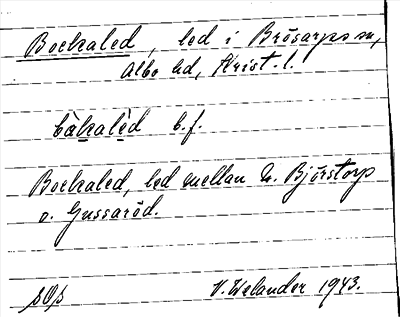 Bockaled, led i Brösarps sn,
Albo hd, Krist. l.
bàkalèd b.f.
Bockaled, led mellan N. Björstorp
o. Gussaröd.
V. Welander 1943.